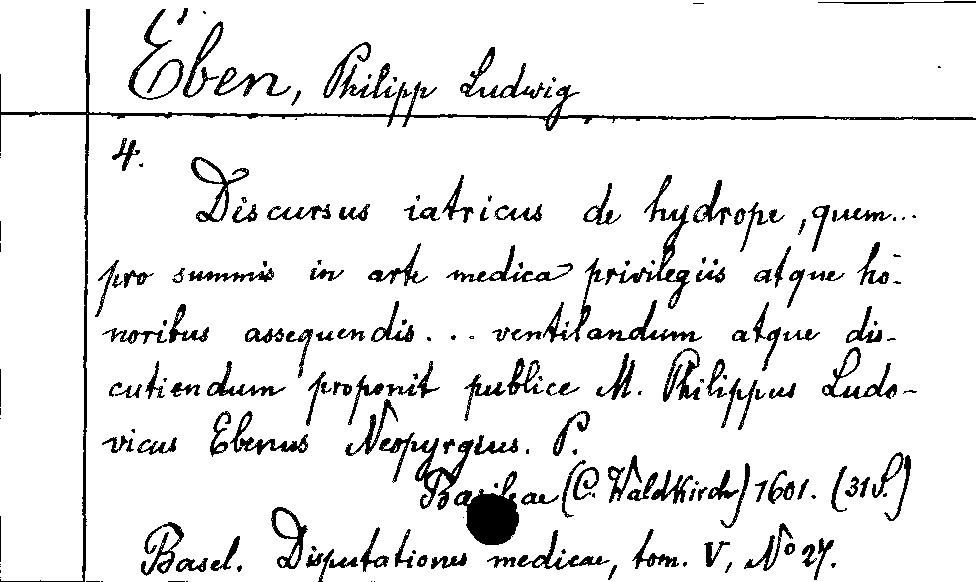 Eben, Philipp Ludwig
4.
Discursus iatricus de hydrope, quem...
pro summis in arte medica privilegiis atque ho-
noribus assequendis... ventilandum atque dis-
cutiendum proponit publice M. Philippus Ludo-
vicus Ebenus Neopyrgius. P.
Basileae (C. Waldkirch) 1601. (31 S.)
Basel. Disputationes medicae, tom. V, No 27.